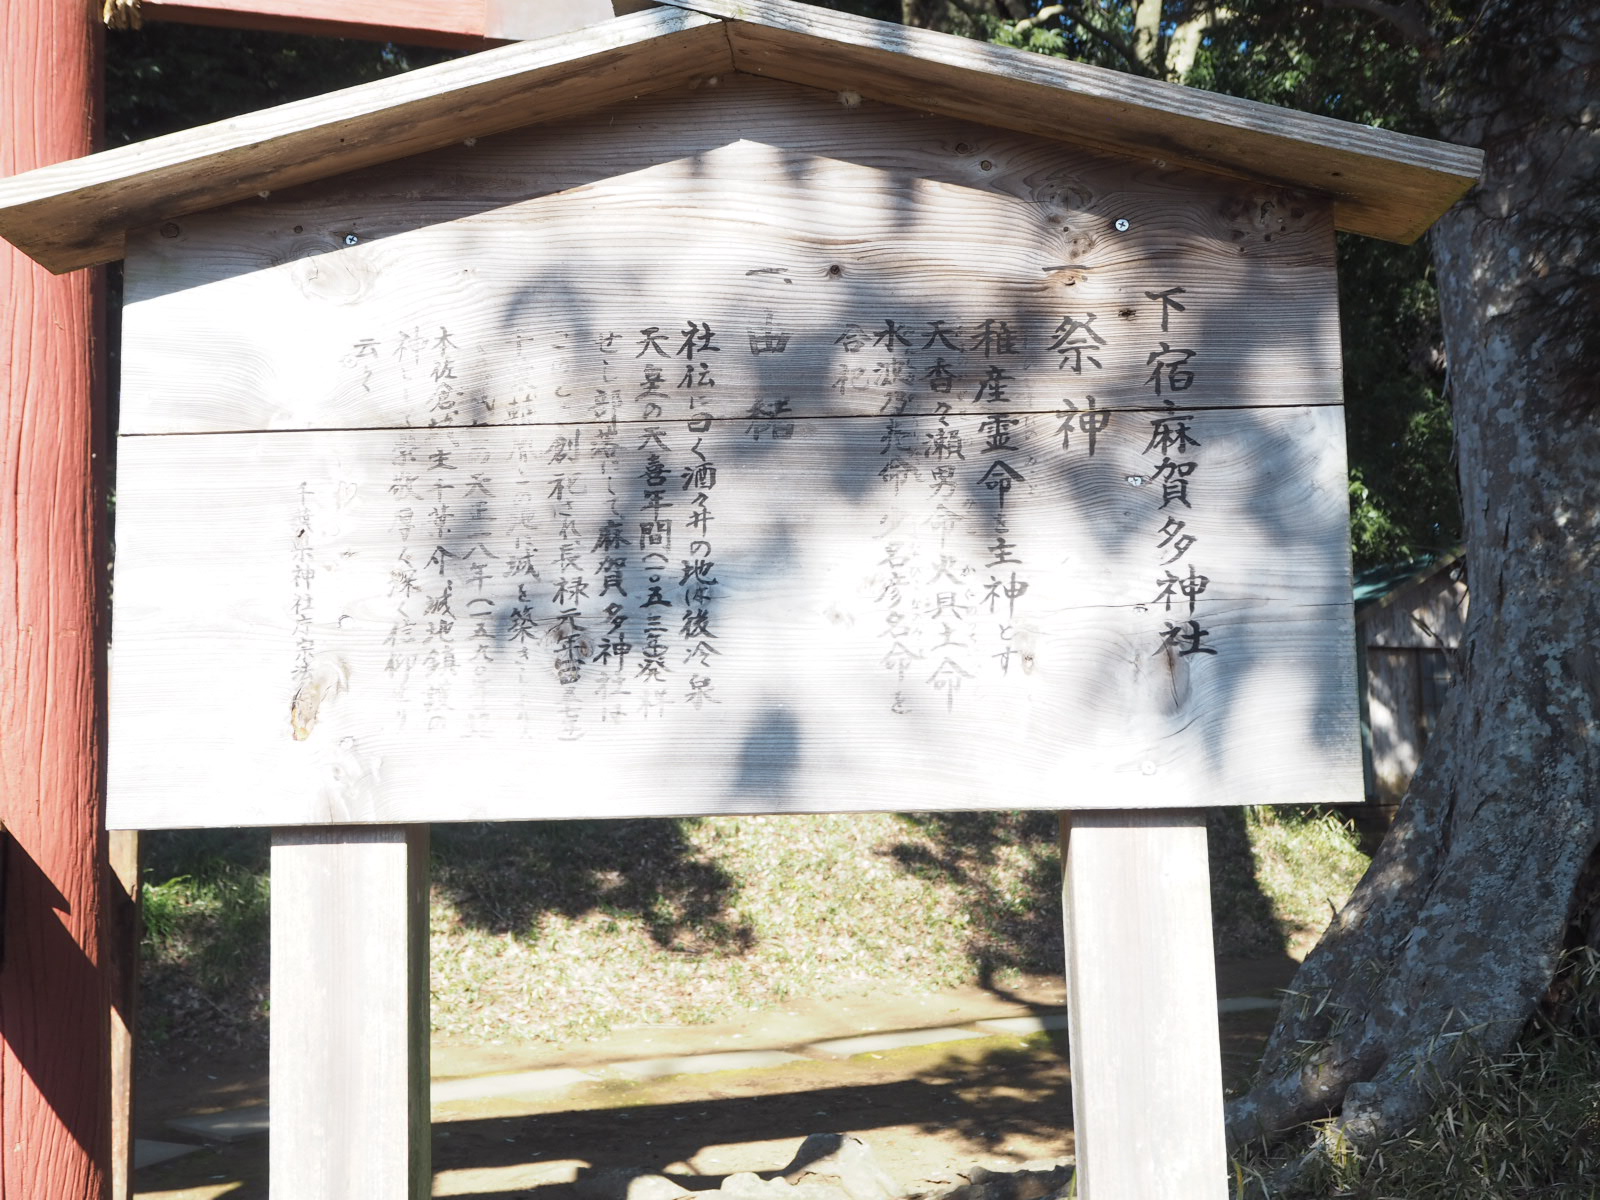 下宿麻賀多神社
一祭神
稚産霊命を主神とす
天香々瀬男命火具土命
水鴻乃売命少名彦名命を
合祀
一、由緒
社伝に曰く酒々井の地は後冷泉
天皇の天喜年間(一〇五三年発祥
せし部落にして麻賀多神社は
創祀され長禄元年
の地に城を築き
天正一八年(一五九〇年
本佐倉城主千葉介、城地鎮護の
神として崇敬厚く深く信仰
云々
千葉県神社庁宗法